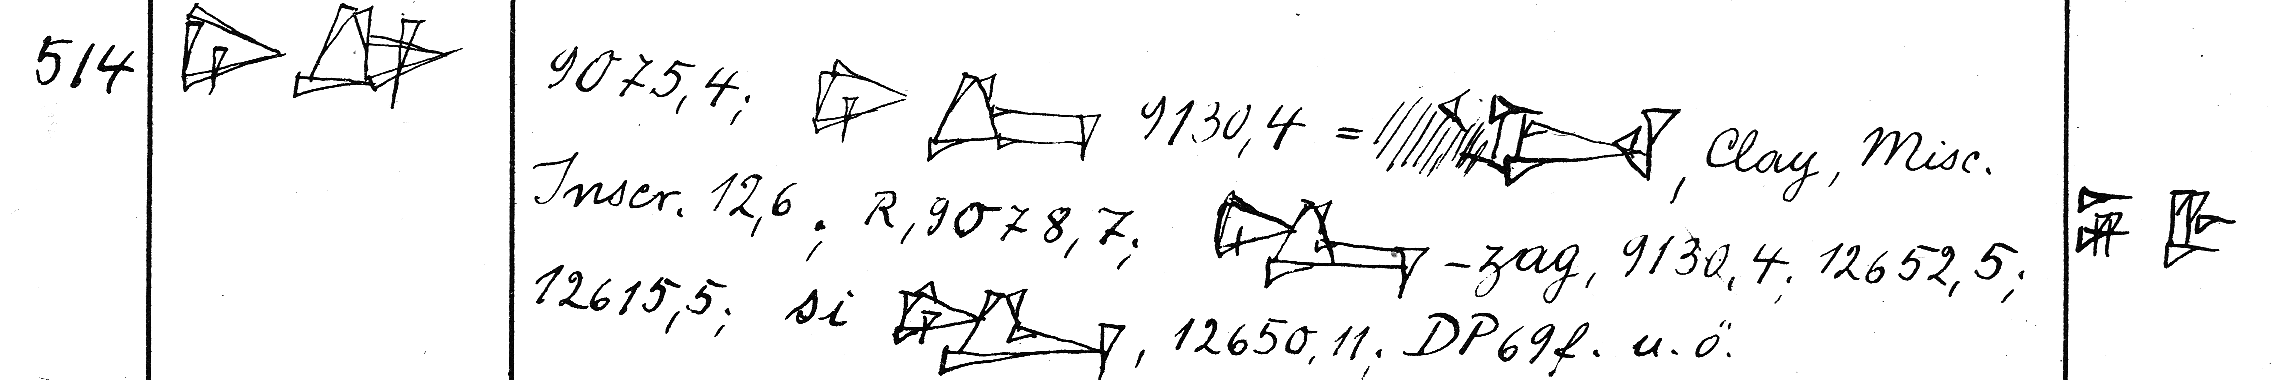 514 9075,4; 9130,4 = , Clay, Misc.
Inscr. 12,6; R, 9078,7; -zag, 9130,4; 12652,5;
12615,5; si , 12650,11; DP69f. u. ö.